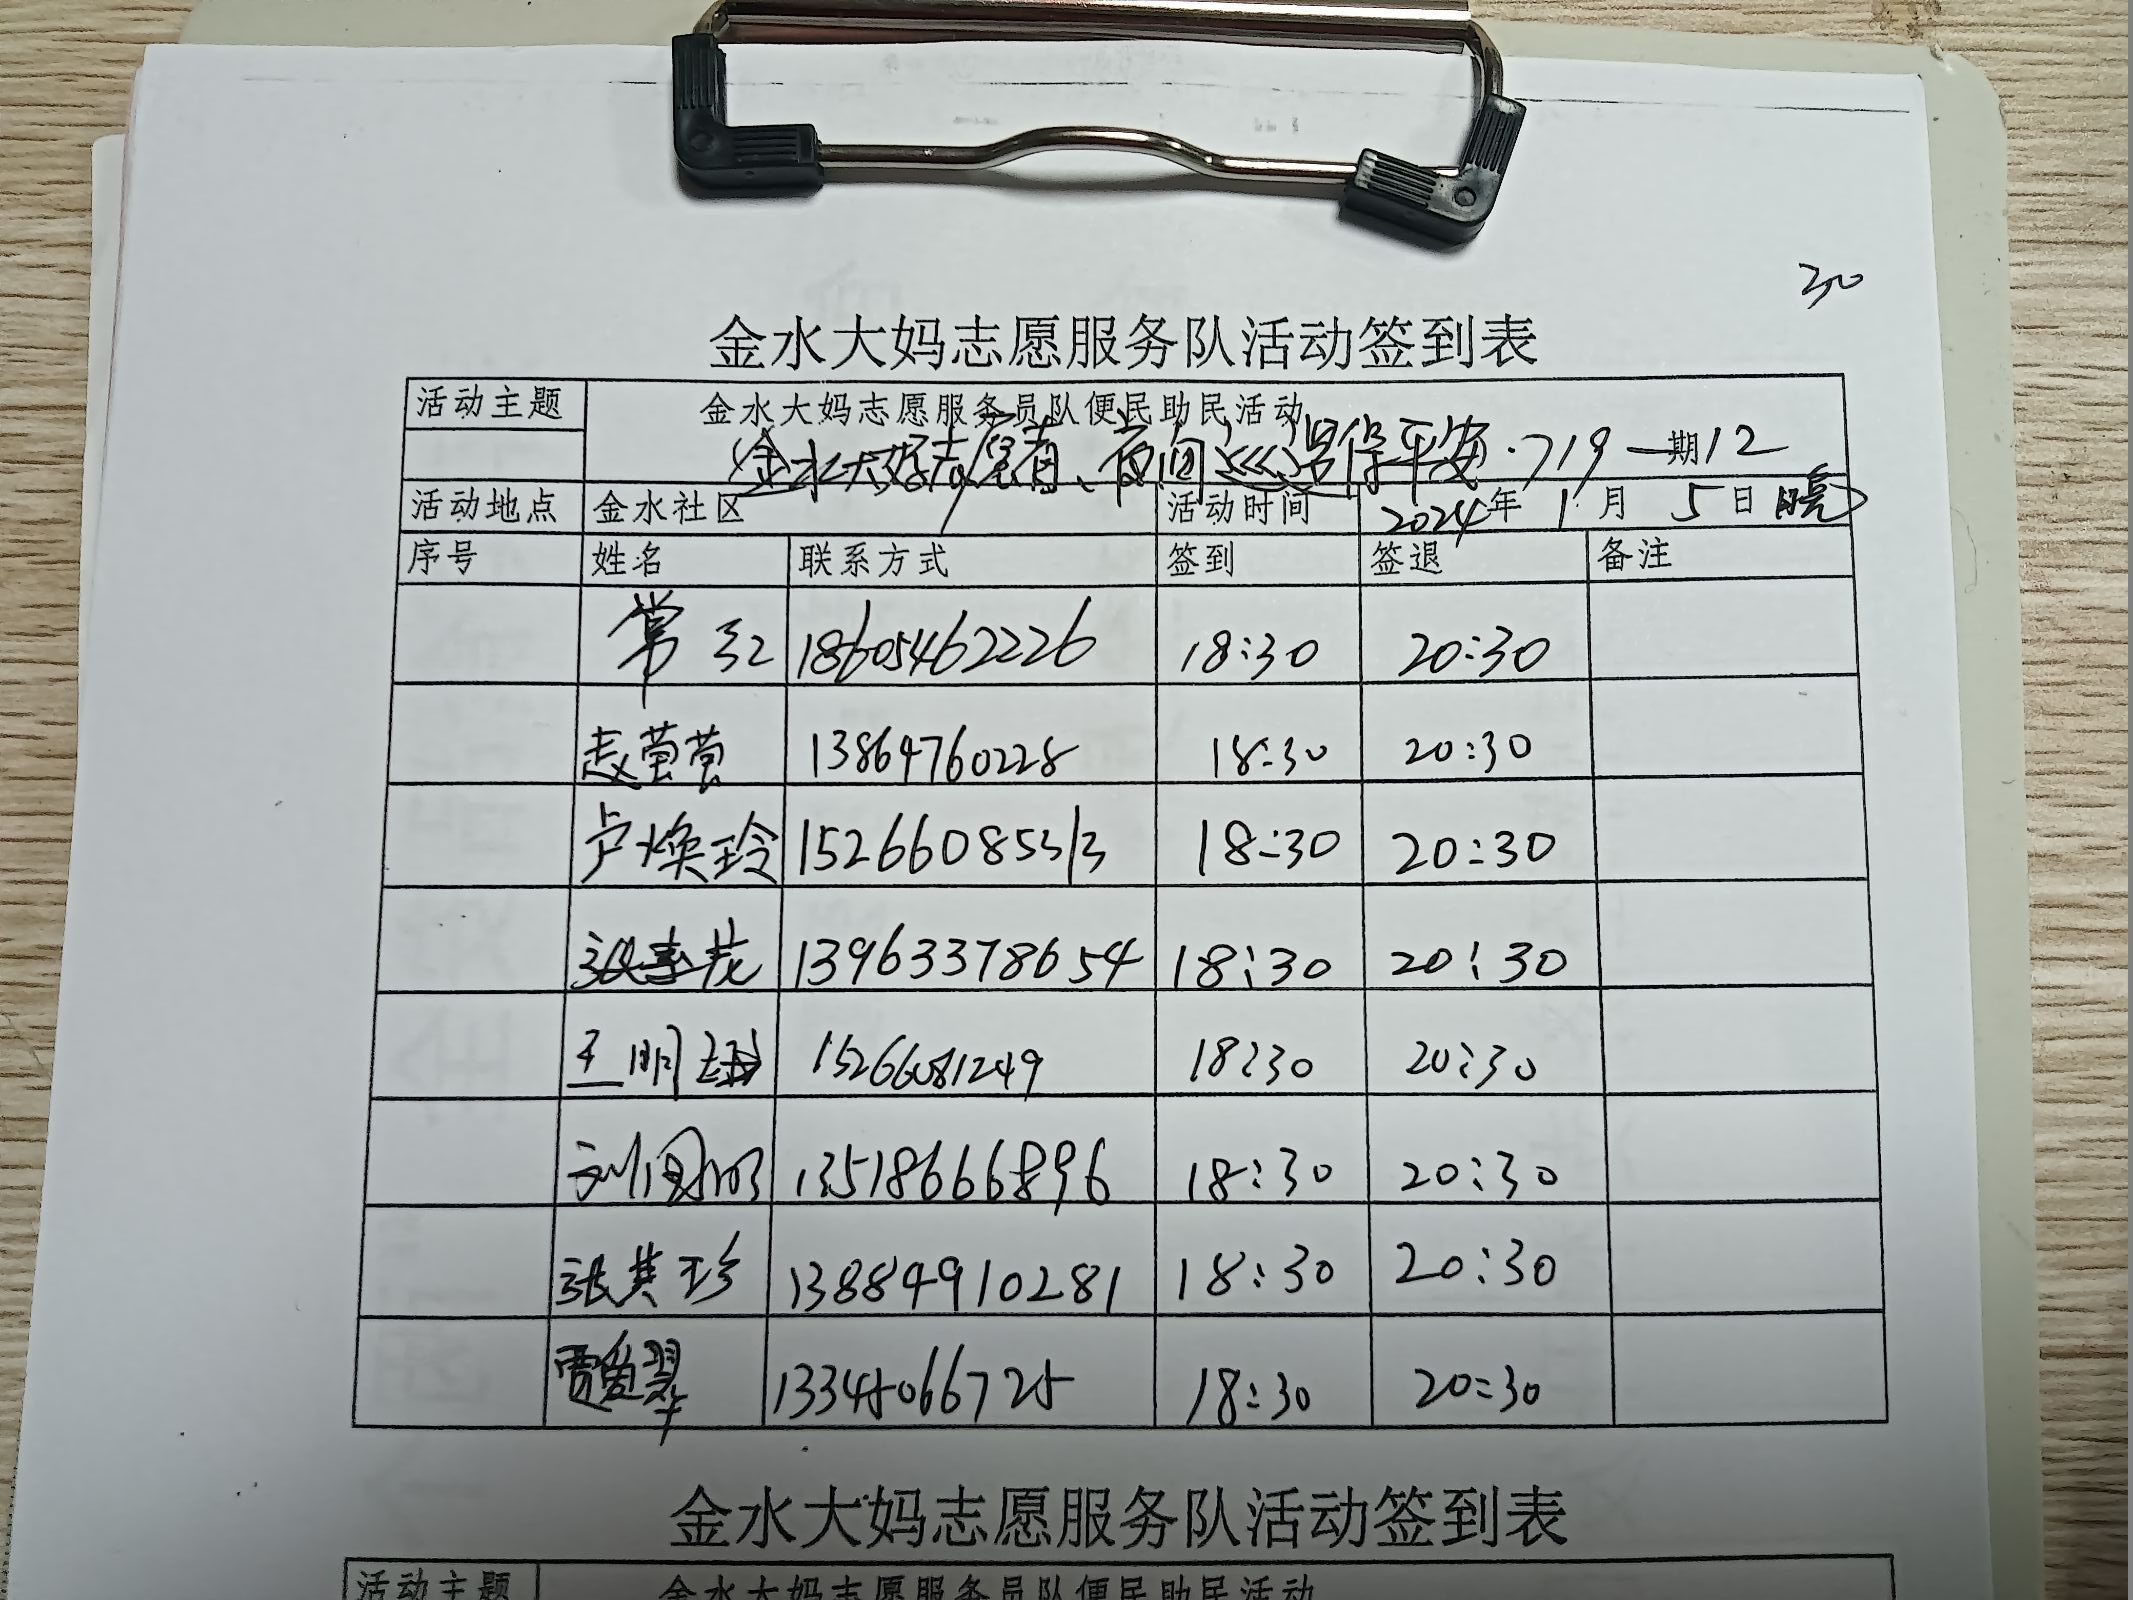 30
金水大妈志愿服务队活动签到表
活动主题 金水大妈志愿服务员队便民助民活动
金水大妈志愿者、夜间巡逻保平安·719一期12
活动地点 金水社区 活动时间 2024年1月5日晚
序号 姓名 联系方式 签到 签退 备注
常红 18605462226 18:30 20:30
赵萤萤 13864760228 18:30 20:30
卢焕玲 15266085313 18:30 20:30
张素花 13963378654 18:30 20:30
王明 15266081249 18:30 20:30
刘 13518666896 18:30 20:30
张其珍 13884910281 18:30 20:30
贾爱翠 13345066725 18:30 20:30
金水大妈志愿服务队活动签到表
活动主题 金水大妈志愿服务员队便民助民活动